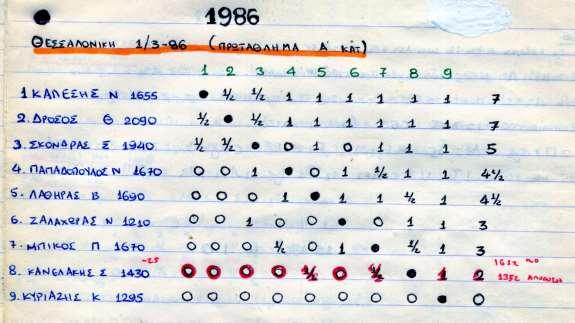 1986
ΘΕΣΣΑΛΟΝΙΚΗ 1/3-86 (ΠΡΩΤΑΘΛΗΜΑ Α' ΚΑΤ)
1 2 3 4 5 6 7 8 9
1 ΚΑΠΕΣΗΣ Ν 1655 ● ½ ½ 1 1 1 1 1 1 7
2. ΔΡΟΣΟΣ Θ 2090 ½ ● ½ 1 1 1 1 1 1 7
3. ΣΚΟΝΔΡΑΣ Σ 1940 ½ ½ ● 0 1 0 1 1 1 5
4. ΠΑΠΑΔΟΠΟΥΛΟΣ Ν 1670 0 0 1 ● 0 1 ½ 1 1 4½
5. ΛΑΘΗΡΑΣ Β 1690 0 0 0 1 ● 1 1 ½ 1 4½
6. ΖΑΛΑΧΩΡΑΣ Ν 1210 0 0 1 0 0 ● 0 1 1 3
7. ΜΠΙΚΟΣ Π 1670 0 0 0 ½ 0 1 ● ½ 1 3
8. ΚΑΝΕΛΑΚΗΣ Σ 1430 -25 0 0 0 0 ½ 0 ½ ● 1 2
9. ΚΥΡΙΑΖΗΣ Κ 1295 0 0 0 0 0 0 0 0 ● 0